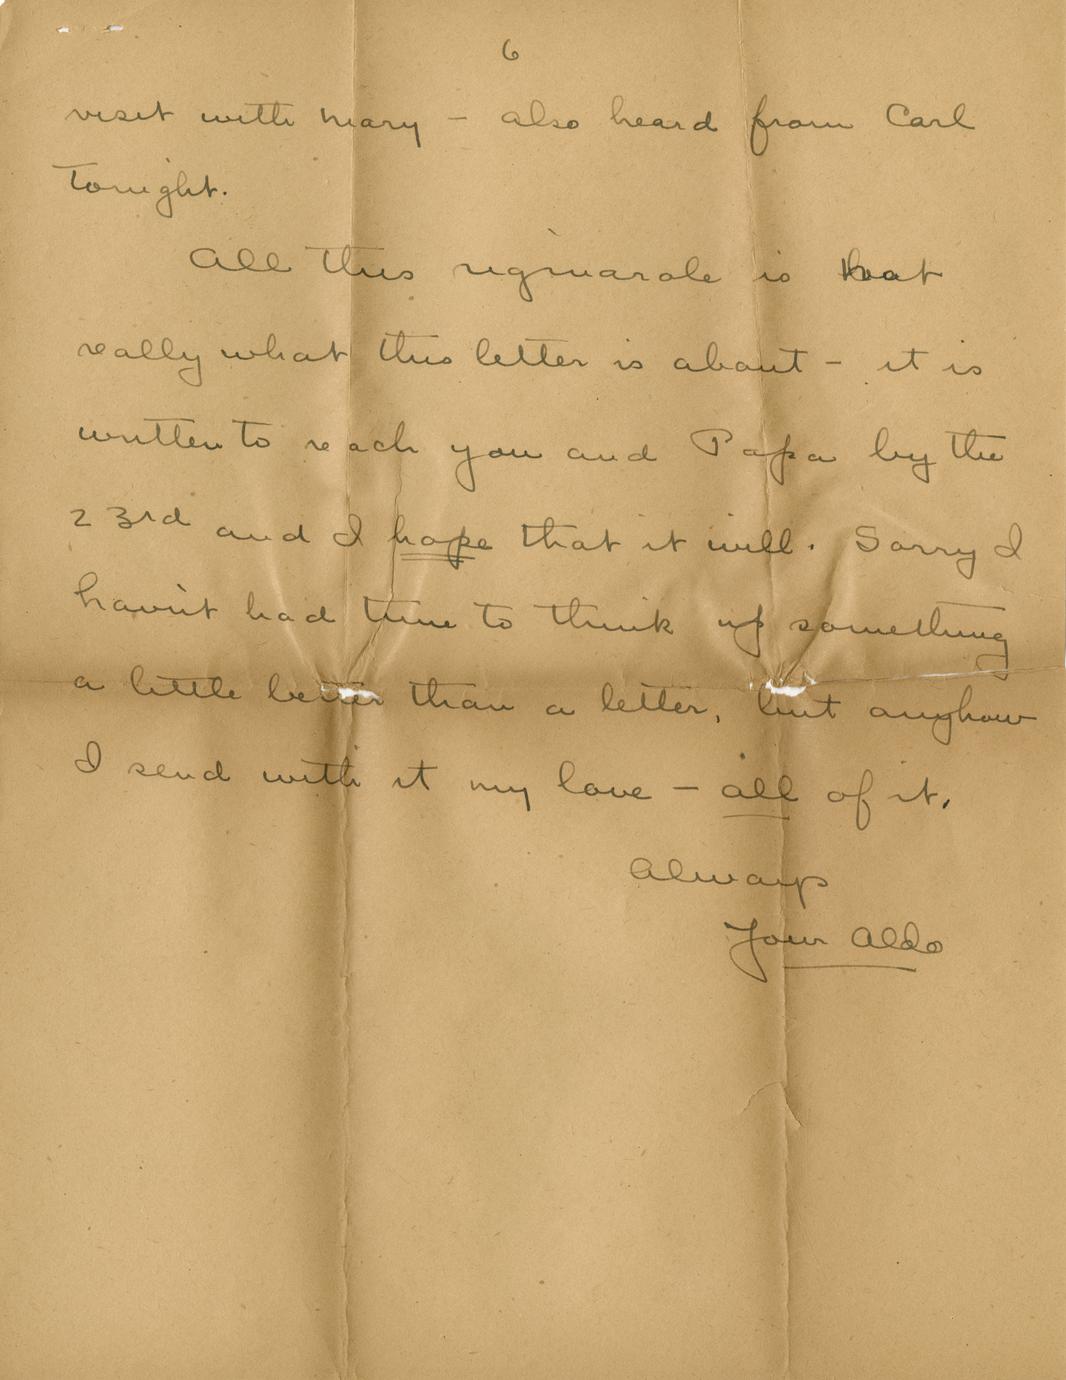 6
visit with Mary - also heard from Carl
tonight.
All this rigmarole is not
really what this letter is about - it is
written to reach you and Papa by the
23rd and I hope that it will. Sorry I
haven't had time to think up something
a little better than a letter, but anyhow
I send with it my love - all of it.
Always
Your Aldo